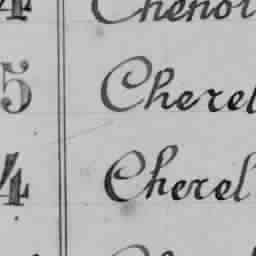 4 Chenot
5 Cherel
4 Cherel